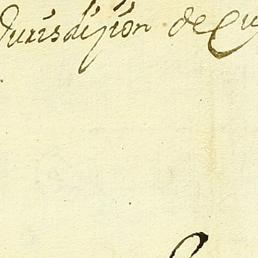 Jurisdiçion de Cu